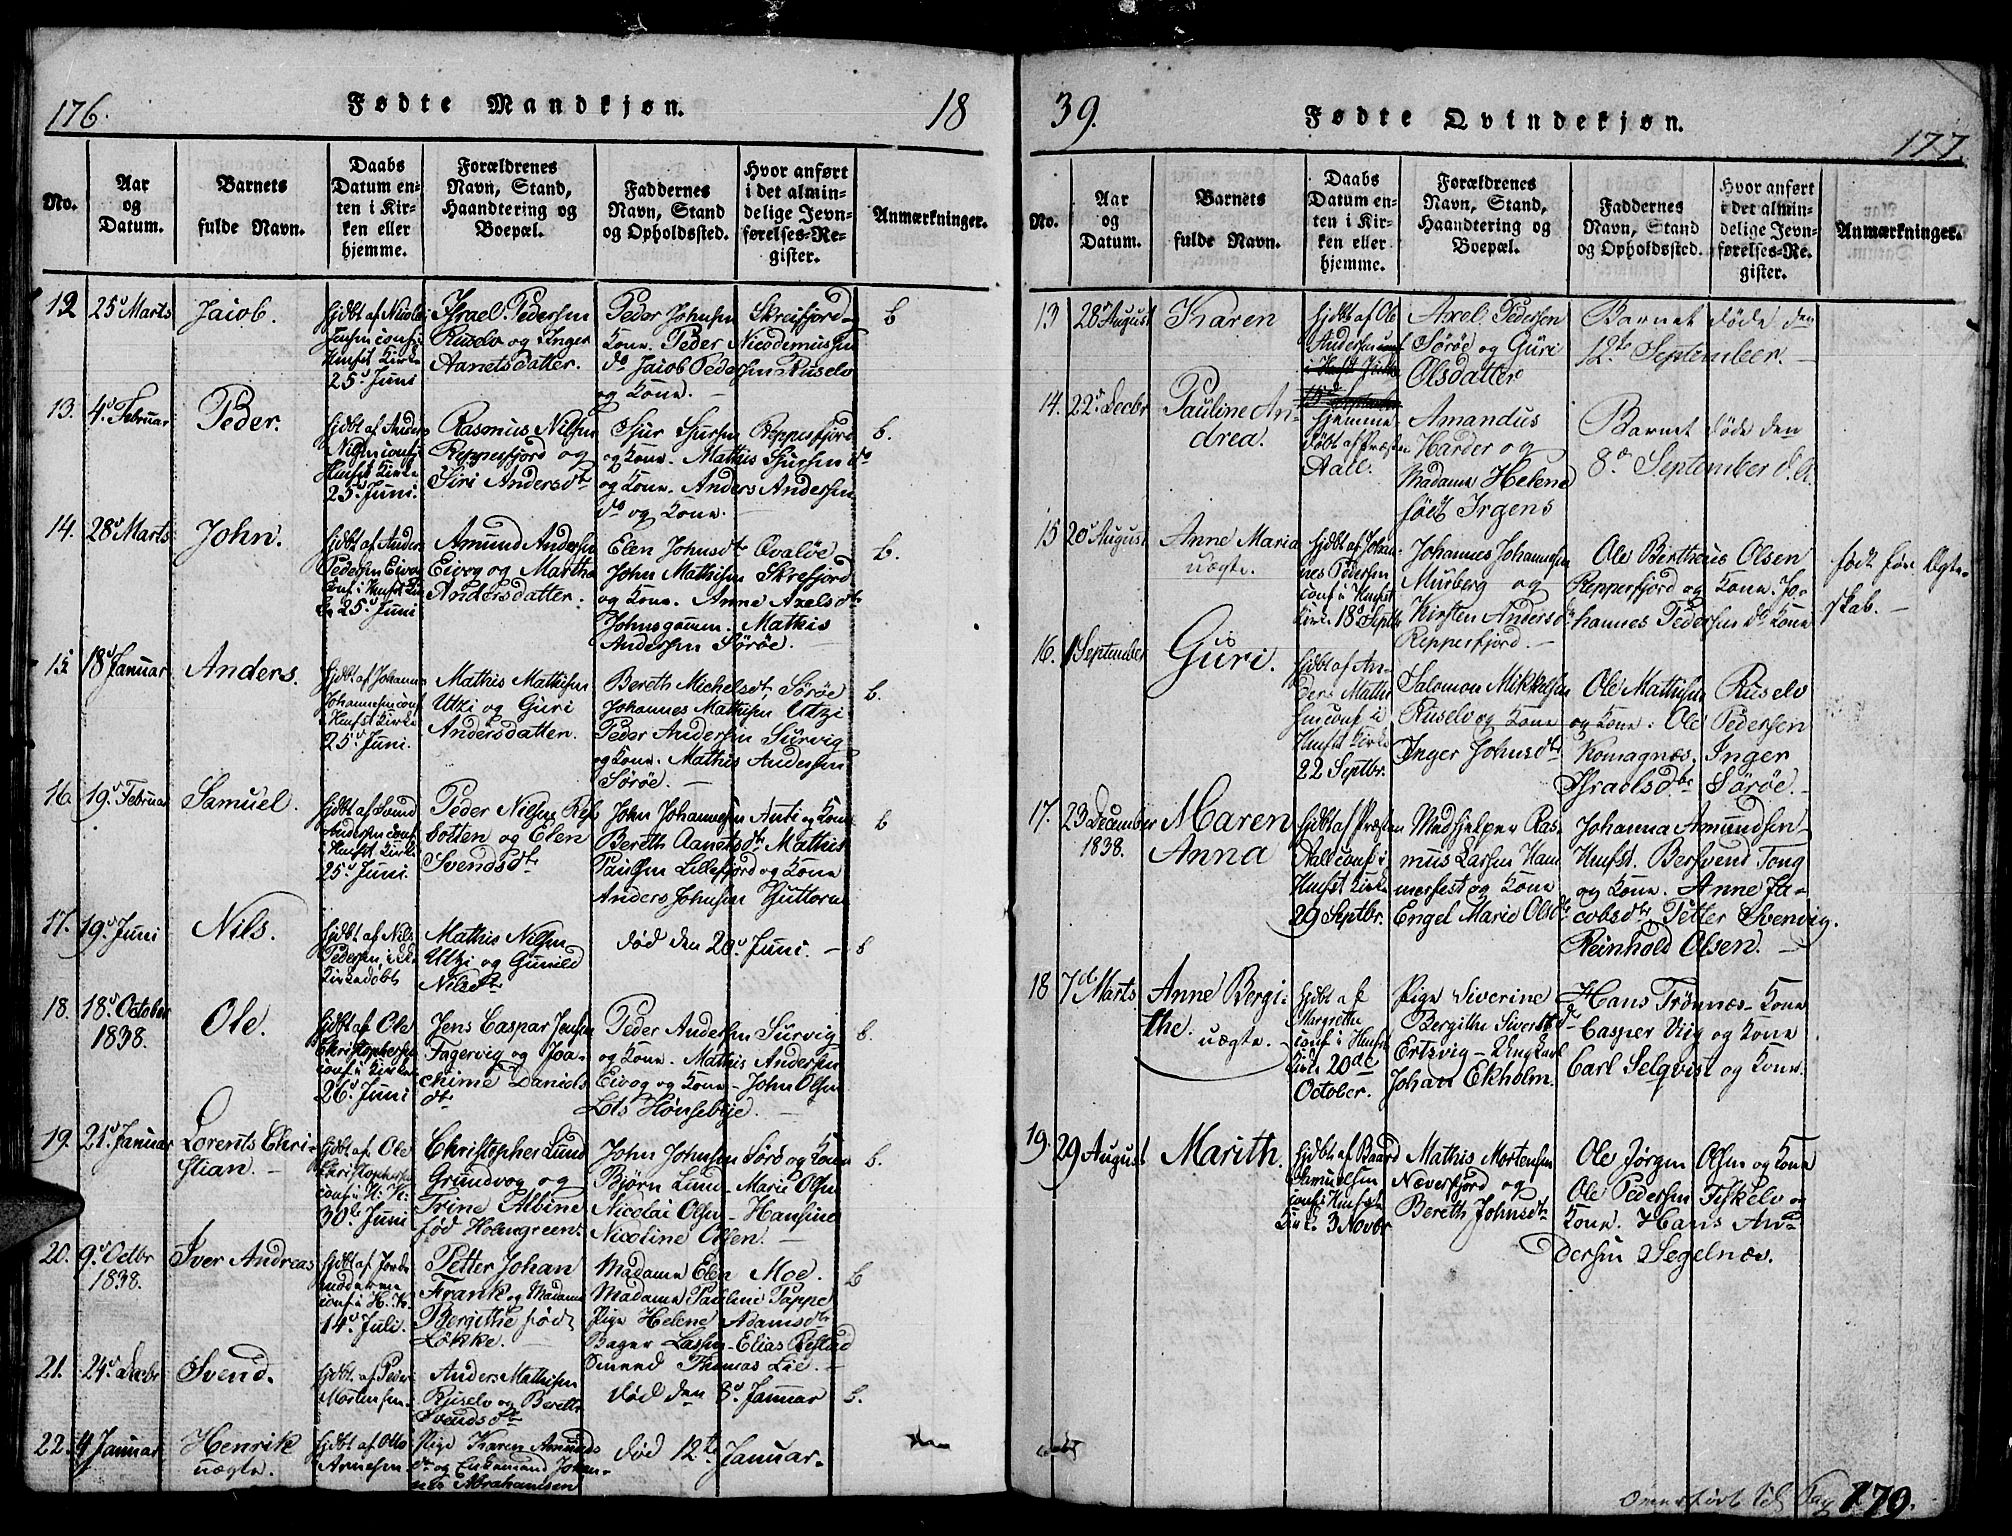 176.
Fødte Mandkjøn.
18
No.
Aar
og
Datum.
Barnets
fulde Navn.
Daabs
Datum en-
ten i Kir-
ken eller
hjemme.
Forældrenes
Navn, Stand,
Haandtering og
Boepæl.
Faddernes
Navn, Stand
og Opholdssted.
Hvor anført
i det almin-
delige Jevn-
førelses-Re-
gister.
Anmærkninger.
12
25d Marts
Jaiob.
hjdbt af Nicolai
Jensen conf i
Hmfst Kirke
25d Juni
Israel Pedersen
Ruselv og Inger
Aanetsdatter.
Peder Johnsen Skreifjord
Kone. Peder Nicodemussen
do Jaiob Pedersen Ruselv
og Kone.
b
13.
4d Februar
Peder.
hjdbt af Anders
Nilsen conf i
Hmfst Kirke
25d Juni.
Rasmus Nilsen
Repperfjord og
Siri Andersdtr
Sjur Sjursen Repperfjord
og Kone. Mathis Sjursen do
og Kone. Anders Andersen
do og Kone.
b.
14.
28d Marts
John.
hjdbt af Anders
Pedersen Eivog
conf. i Hmfst Kir
ke 25d Juni
Amund Andersen
Eivog og Martha
Andersdatter.
Elen Johnsdtr Qvaløe
John Mathisen Skrefjord
og Kone. Anne Axelsdtr
Johnsgammen. Mathis
Andersen Sørøe.
b.
15
18d Januar
Anders.
hjdbt af Johannes
Johannesen conf
i Hmfst Kirke
25d Juni.
Mathis Mathisen
Utzi og Guri
Andersdatter.
Bereth Michelsdtr Sørøe
Johannes Mathisen Utzi
Peder Andersen Survig
og Kone. Mathis Andersen
Sørøe.
b.
16.
19d Februar
Samuel.
hjdbt af Svend
Andersen conf.
i Hmfst Kirke
25d Juni.
Peder Nilsen Ref
botten og Elen
Svendsdtr
John Johannesen Anti og Kone
Bereth Aanetsdtr Mathis
Paulsen Lillefjord og Kone
Anders Johnsen
b
17.
19d Juni
Nils.
hjdbt af Nils
Pedersen, ikke
kirkedøbt
Mathis Nilsen
Utzi og Gunild
Nilsdtr
død den 20d Juni.
b
18.
18d October
1838.
Ole.
hjdbt af Ole
Christophersen
conf i Kirken
26d Juni
Jens Caspar Jensen
Fagervig og Joa-
chime Daniels
dtr
Peder Andersen Survig
og Kone. Mathis Andersen
Eivog og Kone - John Olsen
Lots Hønsebye.
b.
19.
21d Januar
Lorents Chri-
stian.
hjdbt af Ole
Christophersen
conf i H. K.
30te Juni
Christopher Lund
Grundvog og
Trine Albine
fød Holmgreen.
John Johnsen Sørø og Kone
Bjørn Lund - Marie Olsen
Nicolai Olsen - Hansine
Nicoline Olsen.
b.
20.
9d Octbr
1838.
Iver Andreas
hjdbt af Jorde
moderen
conf i H. K.
14d Juli.
Petter Johan
Frank og Madame
Bergithe født
Løkke.
Madame Elen Moe.
Madame Pauline Pappe
Pige Helene Adamsdtr
Bager Lassen - Elias Refstad
Smeed Thomas Lie.
b
21.
24d Decbr
Svend.
hjdbt af Peder
Mortensen.
Anders Mathisen
Ruselv og Bereth
Svendsdtr
død den 3d Januar
b.
22.
4 Januar
Henrik
uægte.
hjdbt af Otto
Arnesen
Pige Karen Amunds
dtr og Enkemand Johan-
nes Abrahamsen
død 12te Januar.
39.
Fødte Qvindekjøn.
177.
No.
Aar
og
Datum.
Barnets
fulde Navn.
Daabs
Datum en-
ten i Kir-
ken eller
hjemme.
Forældrenes
Navn, Stand,
Haandtering og
Boepæl.
Faddernes
Navn, Stand
og Opholdssted.
Hvor anført
i det almin-
delige Jevn-
førelses-Re-
gister.
Anmærkninger.
13
28 August
Karen
hjdbt af Ole
Andersen conf
i Hmfst Kirke
15d September
Axel Pedersen
Sørøe og Guri
Olsdatter
Barnet døde den
12te September.
14.
22d Decbr
Pauline An-
drea.
hjemme
døbt af Præsten
Aall.
Amandus
Harder og
Madame Helene
født Irgens
Barnet døde den
8de September d. A.
15
20d August
Anne Maria
uægte.
hjdbt af Johan-
nes Pedersen
conf i Hmfst
Kirke 18d Septbr
Johannes Johannesen
Murberg og
Kirsten Andersdtr
Repperfjord.
Ole Bertheus Olsen
Repperfjord og Kone. Jo-
hannes Pedersen do Kone
født før Ægte-
skab.
16.
1 September
Guri.
hjdbt af An-
ders Mathi
sen conf i
Hmfst Kirke
22 Septbr.
Salomon Mikkelsen
Ruselv og Kone
Inger Johnsdtr
Ole Mathisen Ruselv
og Kone. Ole Pedersen
Komagnæs. Inger
Israelsdtr Sørøe.
17.
23 December
1838.
Maren
Anna
hjdbt af Præsten
Aall conf i
Hmfst Kirke
29 Septbr.
Medhjelper Ras-
mus Larsen Ham
merfest og Kone
Engel Marie Olsdtr
Johanna Amundsen
Hmfst. Berfvend Tong
og Kone. Anne Ja-
cobsdtr Petter Svenvig.
Reinhold Olsen.
18
7de Marts
Anne Bergi-
the.
uægte.
hjdbt af
Margrethe
conf i Hmfst
Kirke 20de
October.
Pige Siverine
Bergithe Sivertsd-
Ertsvig - Ungkarl
Johan Ekholm.
Hans Trønnæs - Kone
Casper Viig og Kone
Carl Selqvist og Kone.
19.
29 August
Marith.
hjdbt af Baard
Samuelsen
conf i Hmfst
Kirke 3 Novbr
Mathis Mortensen
Næverfjord og
Bereth Johnsdtr
Ole Jørgen Olsen og Kone
Ole Pedersen Fiskelv og
Kone. Hans An-
dersen Segelnæs.
Overført til Pag
179.